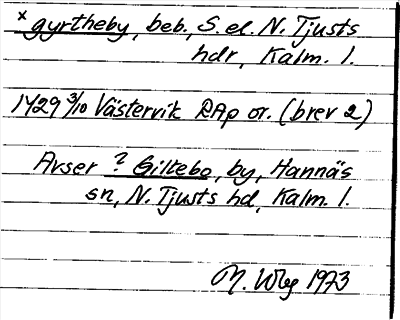 x gyrtheby, beb., S. el. N. Tjusts
hdr, Kalm. l.
1429 3/10 Västervik RAp or. (brev 2)
Avser ? Giltebo, by, Hannäs
sn, N. Tjusts hd, Kalm. l.
1973